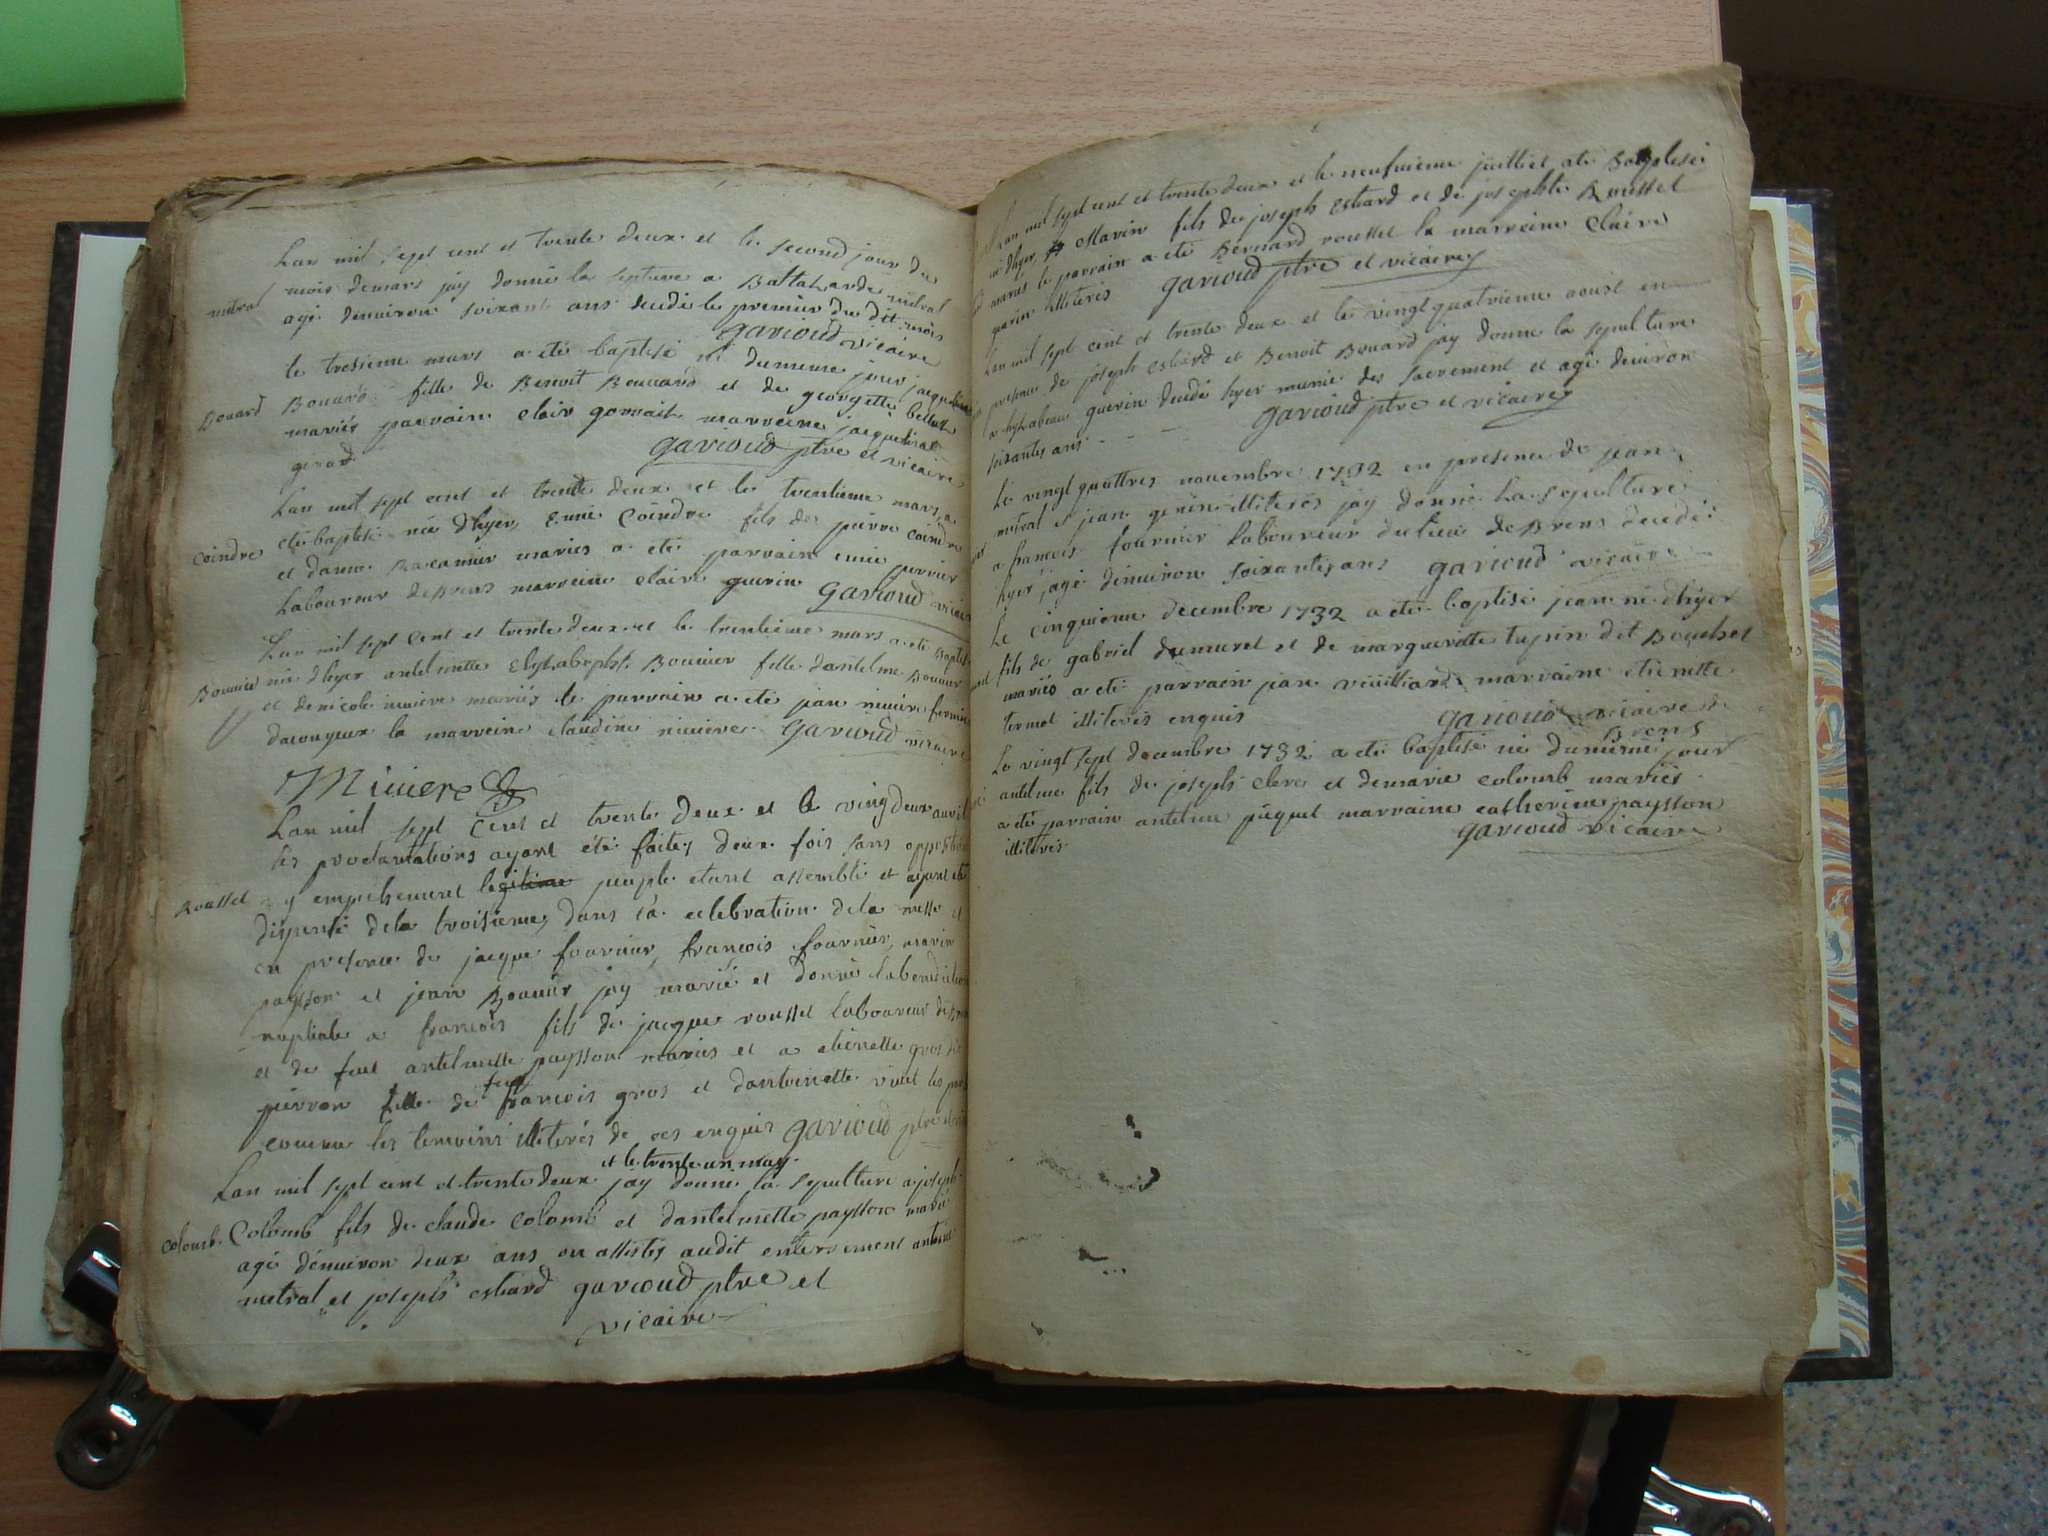 Lan mil sept cent et trente deux et le second jour du
mois demars jay donné la septure a Baltazarde métral
métral
agé denuiron soixante ans decedé le premier du dit mois
garioud vicaire
le tresieme mars a eté baptisé né dumeme jour jacqueline
Bouard
Bouard fille de Benoit Bouuard et de georgette
mariés parrain clair gonrait marreine jacqueline
girard
garioud ptre et vicaire
Lan mil sept cent et trente deux et le trentieme mars a
eté baptisé née dhyer Enné Coindre fils de pierre coindre
coindre
et danne mariés a eté parrain enné perrier
Laboureur deBrens marreine claire guerin garioud vicaire
Lan mil sept cent et trente deux et le trentieme mars a eté Baptisé
Bouuier
née dhyer antelmette Elyzabephe Bouuier fille dantelme Bouuier
et denicole niuiere mariés le parrain a eté jean niuiere fermier
daconyeux la marreine claudine niuiere garioud vicaire
Miuiere
Lan mil sept Cent et trente deux et le vingdeux auril
les proclamations ayant été faites deux fois sans opposition
Roussel
y empechement legitime peuple etant assemblé et ayant eté
dispensé dela troisieme, dans la celebration dela messe et
en presence de jacque fournier, françois fournier, marin
paysson et jean Bouuier jay marié et donné labenediction
nuptiale a françois fils de jacque roussel Laboureur deBrens
et de feue antelmette paysson mariés et a etienette gros dit
pierron fille de feu françois gros et dantoinette viuet les
comme les temoins illiterés de ces enquis garioud ptre
Lan mil sept cent et trente deux et le trente un may jay donné la sepulture a joseph
colomb.
Colomb fils de claude colomb et dantelmette paysson mariés
agé dénuiron deux ans on assistés audit enterrement antoine
metral et joseph estiard garioud ptre et
vicaire
Lan mil sept cent et trente deux et le neufuieme juillet a eté Baptisé
né dhyer Marin fils de joseph Estiard et de josephte Roussel
mariés le parrain a eté Bernard roussel la marreine Claire
guerin illiterés garioud ptre et vicaire
Lan mil sept cent et trente deux et le vingt quatrieme aoust en
presence de joseph estiard et Benoit Bouard jay donné la sepulture
a guerin decedé hyer munie des sacrement et agé denuiron
soixantes ans - - - garioud ptre et vicaire
Le vingt quattres nouembre 1732 en presence de jean
metral et jean genin illiterés jay donné La sepulture
a françois fournier Laboureur dulieu deBrens decedé
hyer agé denuiron soixantes ans garioud vicaire
Le cinquieme decembre 1732 a eté baptisé jean né dhyer
fils de gabriel dumurel et de marguerite tupin dit Bouchet
mariés a eté parrain jean marraine etienette
termet illiterés enquis garioud vicaire de
Brens
Le vingt sept decembre 1732 a eté baptisé né dumeme jour
antelme fils de joseph clerc et demarie colomb mariés
a eté parrain antelme piquet marraine catherine paysson
illiterés garioud vicaire